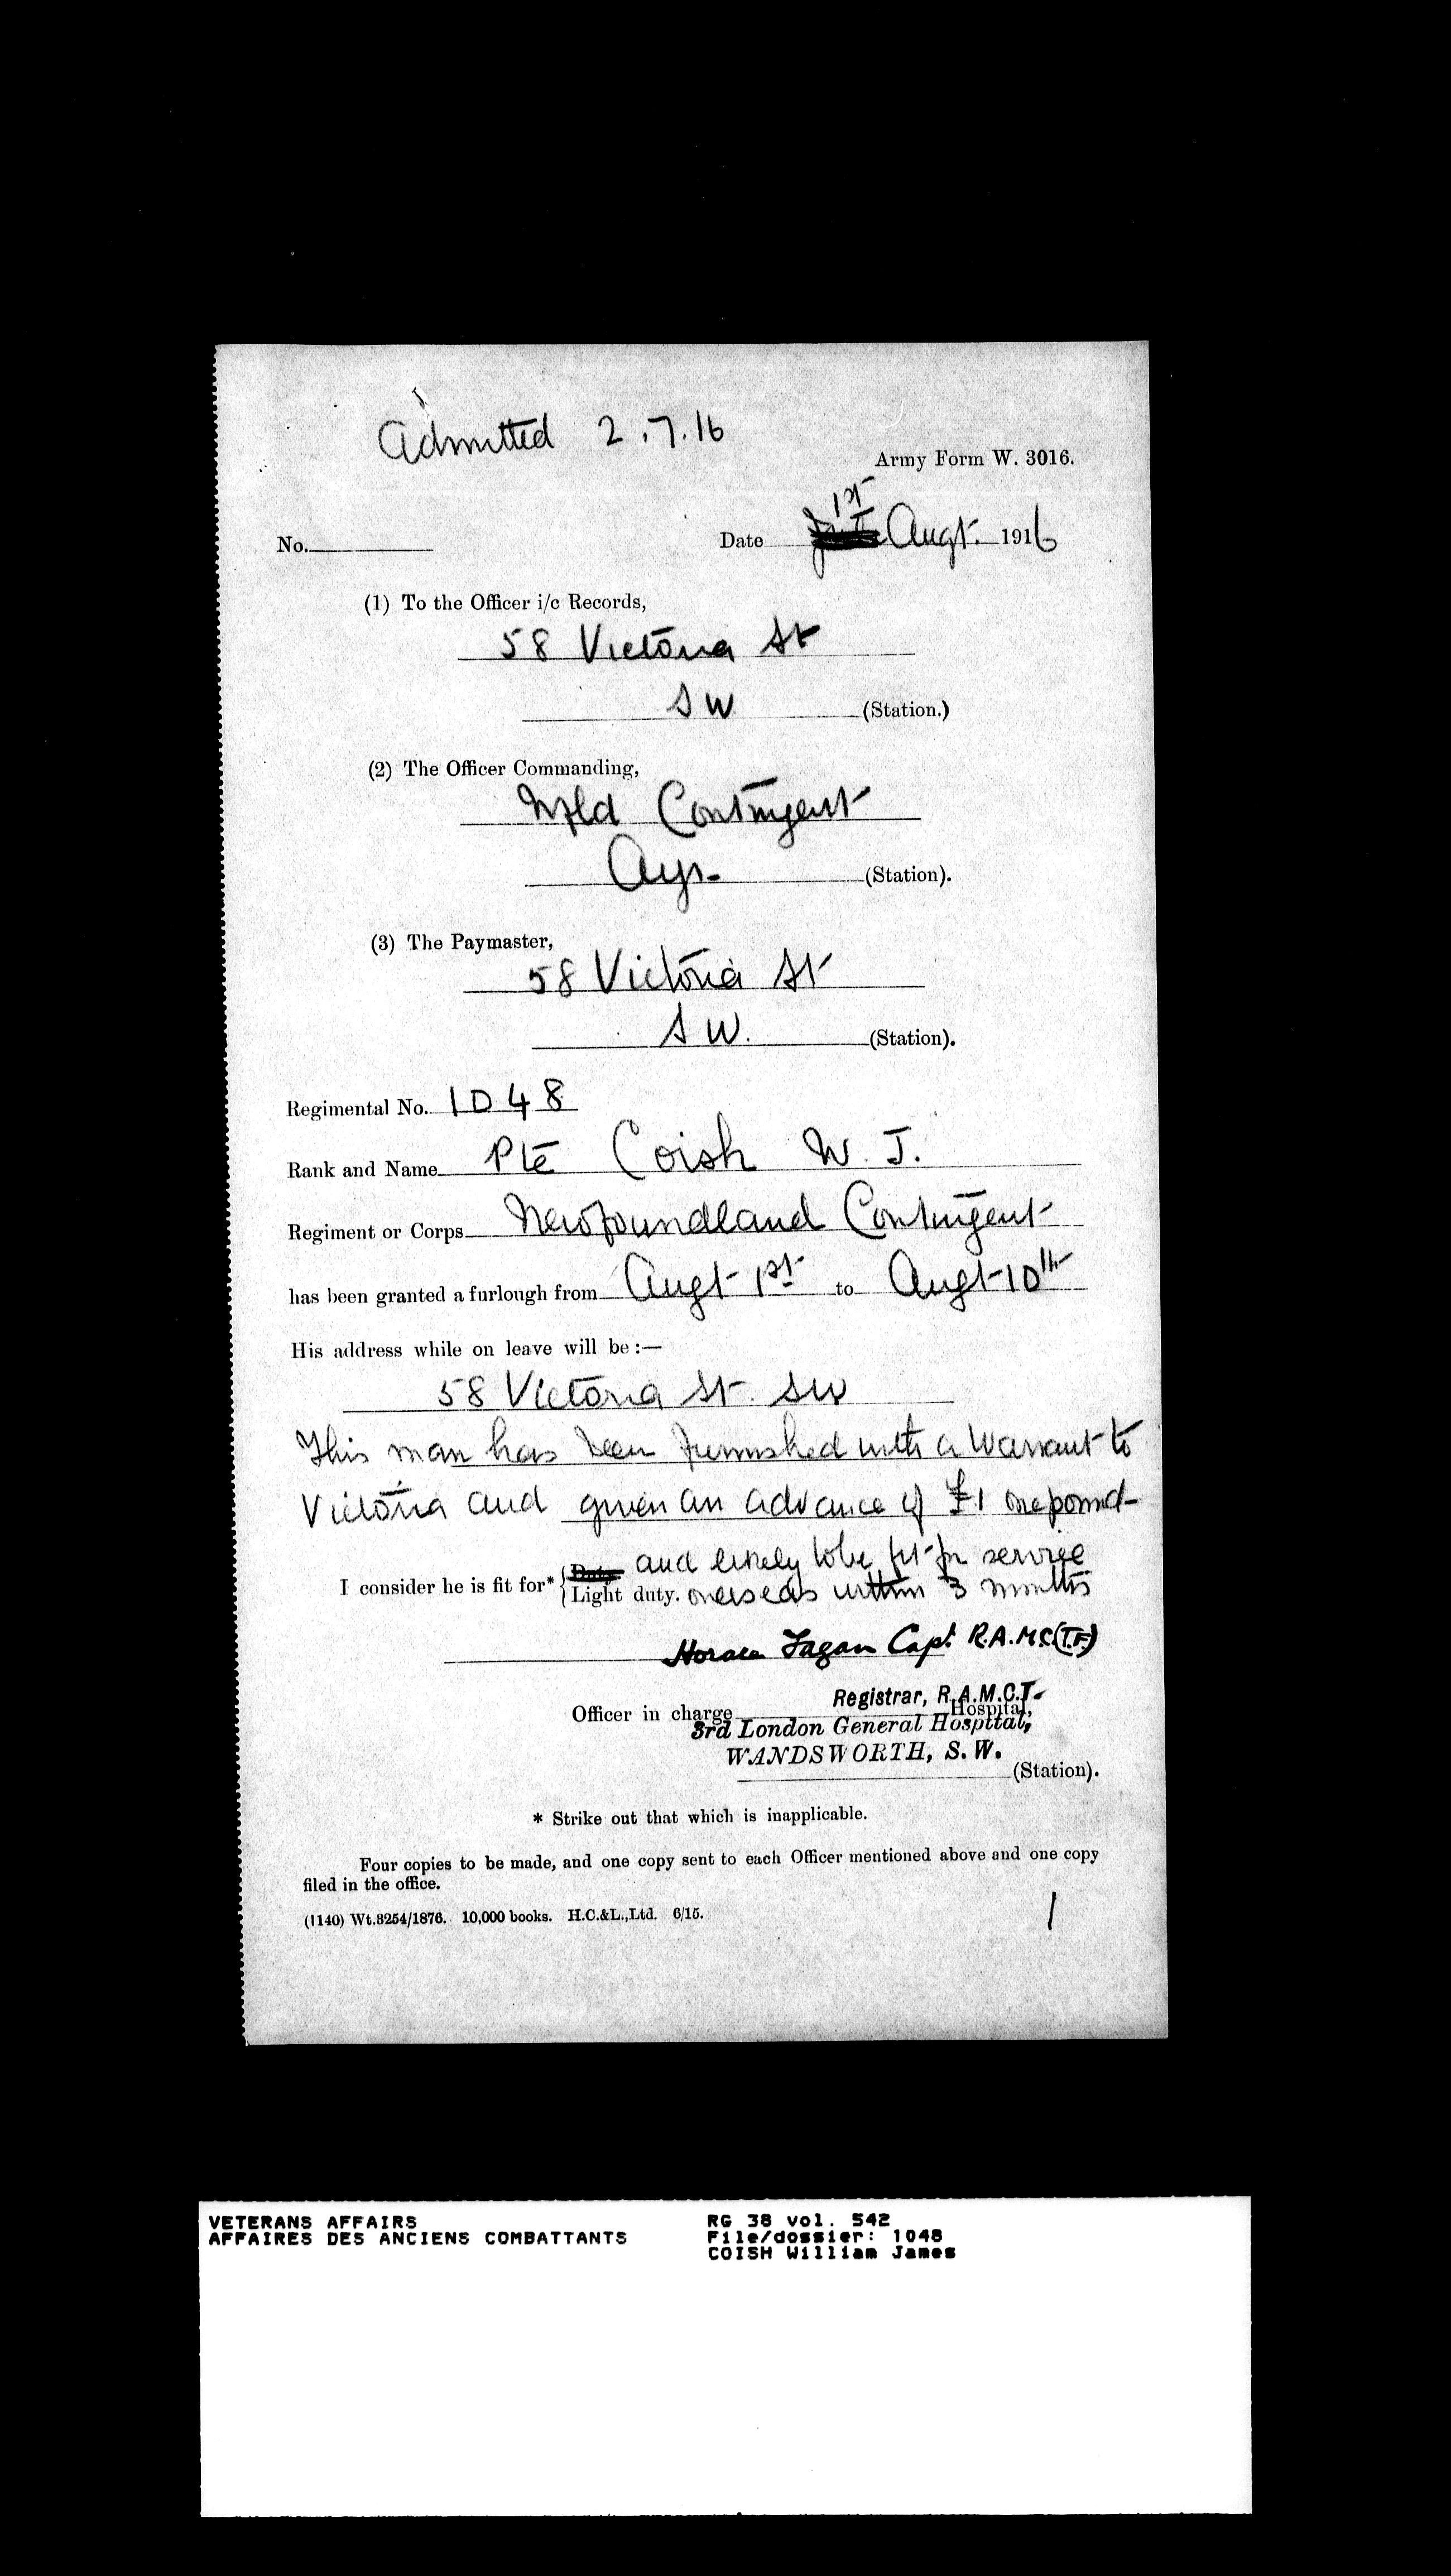 Admitted 2.7.16
Army Form W. 3016.
No.
Date 1st Augt. 1916
(1) To the Officer i/c Records,
58 Victoria St
SW (Station.)
(2) The Officer Commanding,
Nfld Contingent
Ayr. (Station).
(3) The Paymaster,
58 Victoria St
SW. (Station).
Regimental No. 1048
Rank and Name Pte Coish W. J.
Regiment or Corps Newfoundland Contingent
has been granted a furlough from Augt 1st to Augt 10th
His address while on leave will be:—
58 Victoria St. SW
This man has been furnished with a Warrant to
Victoria and given an advance of £1 one pound
and likely to be fit for service
I consider he is fit for* { Duty Light duty. overseas within 3 months
Horace Fagan Capt. R.A.M.C(T.F)
Registrar, R.A.M.C.T.
Officer in charge Hospital,
3rd London General Hospital,
WANDSWORTH, S.W.
(Station).
* Strike out that which is inapplicable.
Four copies to be made, and one copy sent to each Officer mentioned above and one copy
filed in the office.
(1140) Wt.3254/1876. 10,000 books. H.C.&L.,Ltd. 6/15.
1
VETERANS AFFAIRS
AFFAIRES DES ANCIENS COMBATTANTS
RG 38 vol. 542
File/dossier: 1048
COISH William James